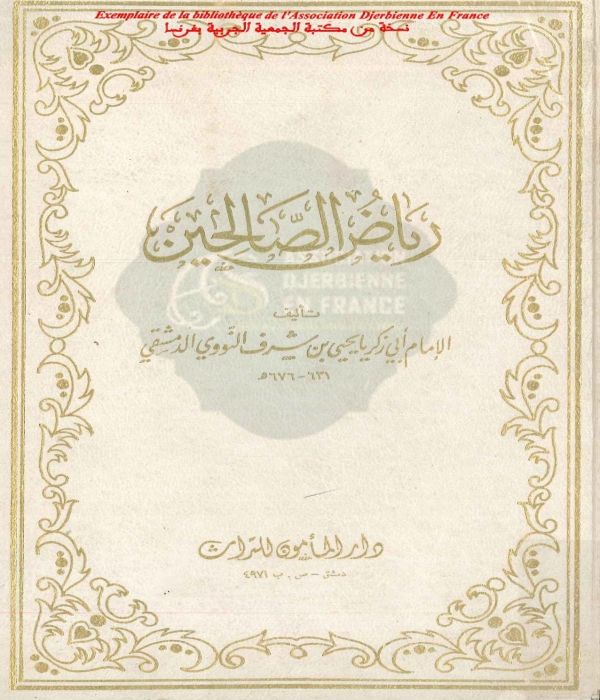 Exemplaire de la bibliothèque de l'Association Djerbienne En France
نسخة من مكتبة الجمعية الجربية بفرنسا
رياضُ الصَّالحين
DJERBIENNE
EN FRANCE
تأليف
الإمام أبي زكريا يحيى بن شرف النَّووي الدمشقي
٦٣١-٦٧٦هـ
دار المأمون للتراث
دمشق - ص . ب ٤٩٧١